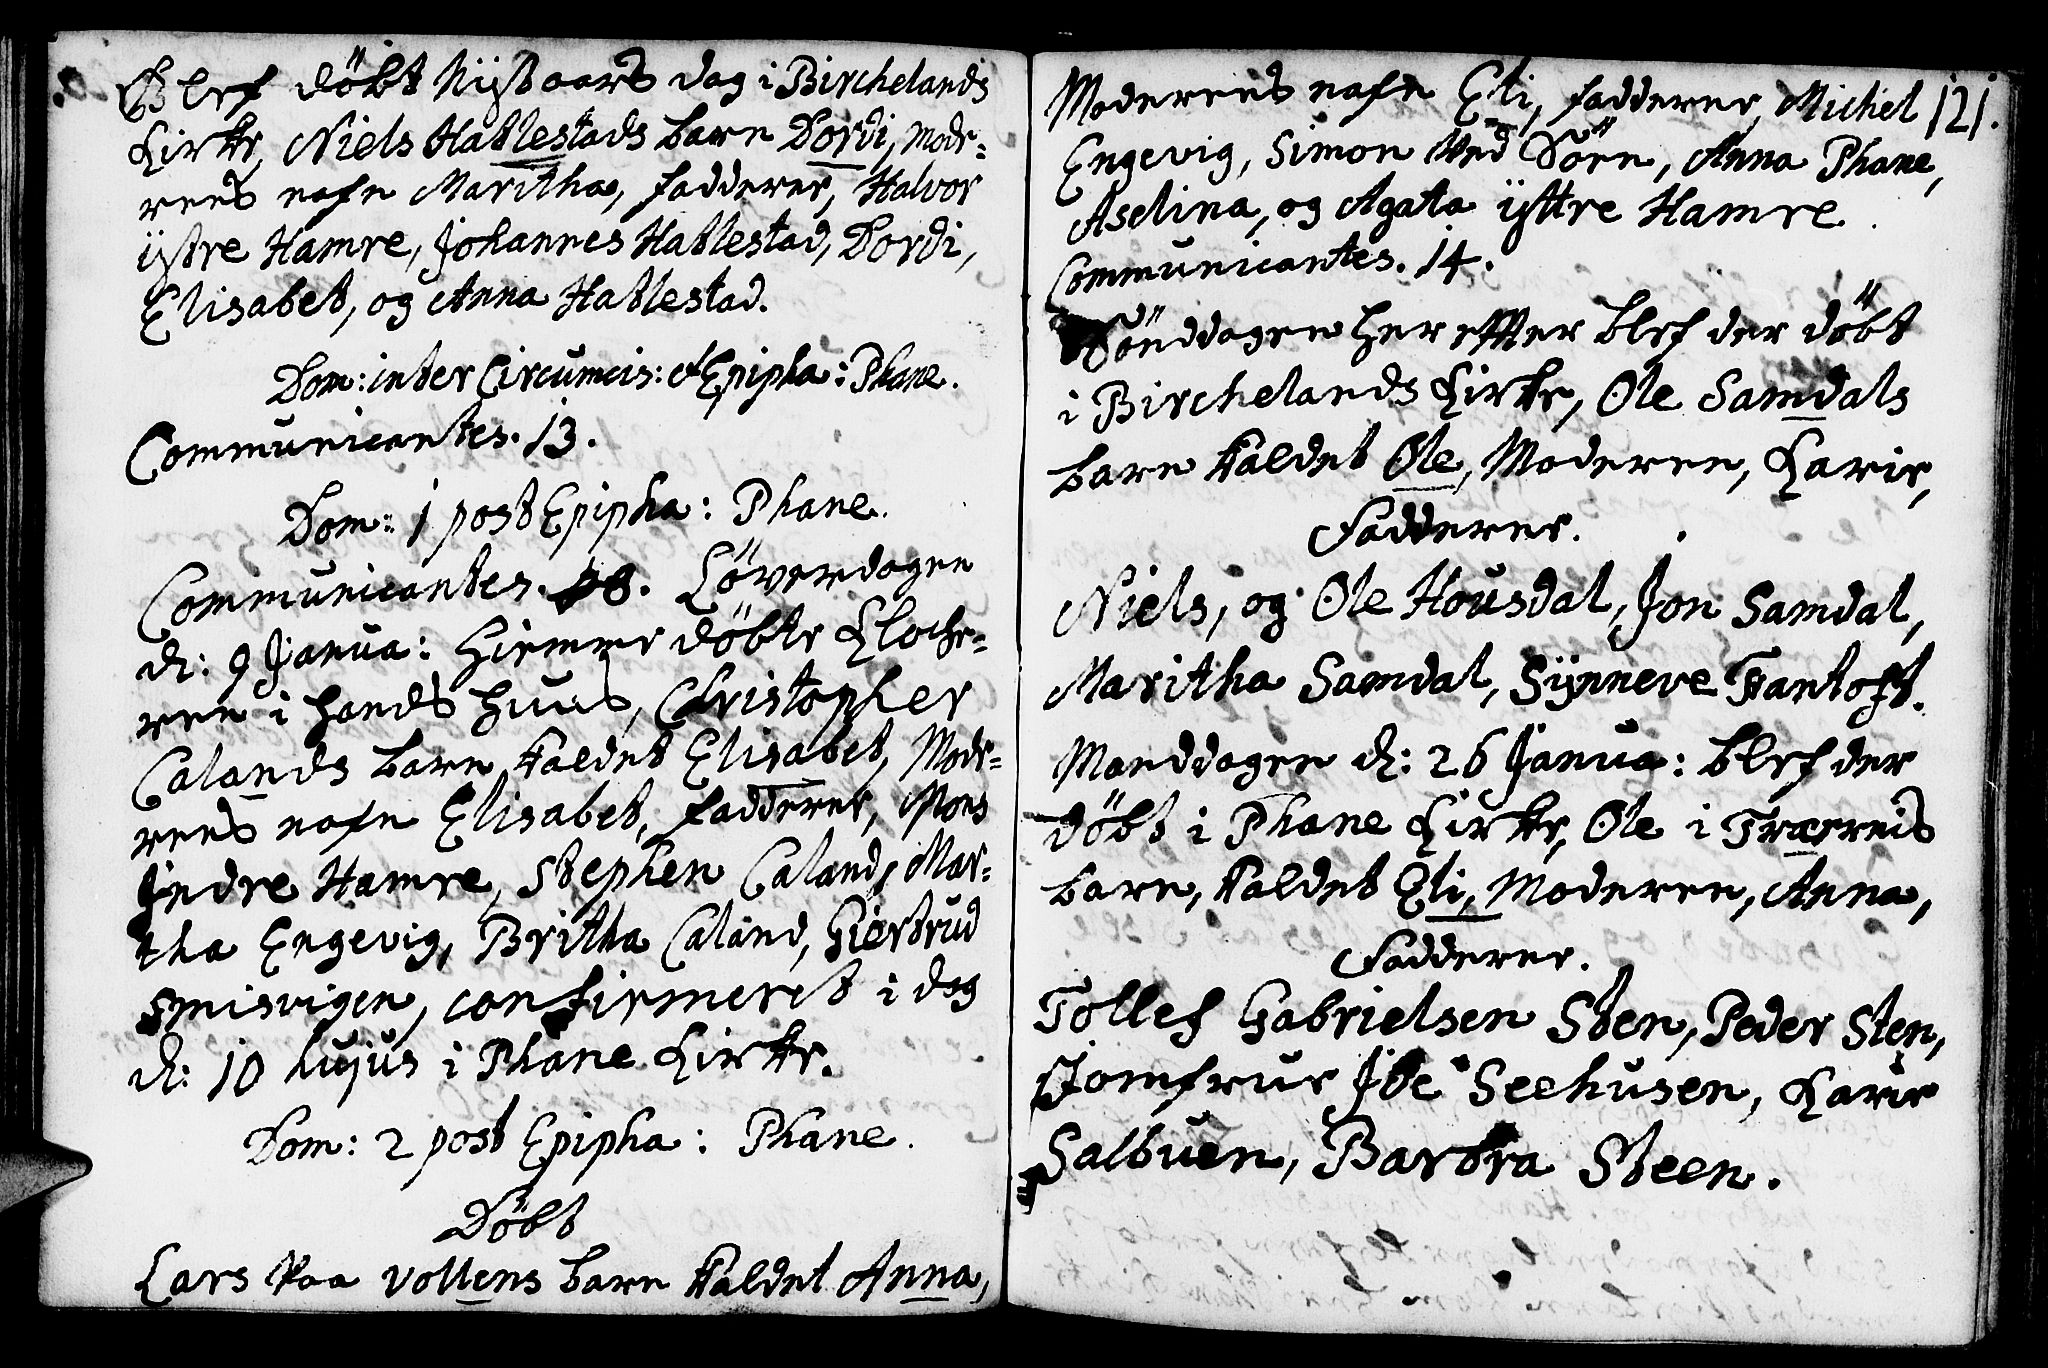 Blef döbt Nÿt aars dag i Birchelands
Kirke, Niels Hatlestads barn Dordi, Mode-
rens nafn Maritha, fadderer, Halvor
ÿstre Hamre, Johannes Hatlestad, Dordi,
Elisabet, og Anna Hatlestad.
Dom: inter Circumcis: et Epipha: Phane.
Communicantes. 13.
Dom: 1 post Epipha: Phane.
Communicantes. 28. Löverdagen
d: 9 Janua: hiemme döbte Klocke-
ren i hands huus, Christopher
Calands barn kaldet Elisabet, Mode-
rens nafn Elisabet, fadderer, Mons
Indre Hamre, Stephen Caland, Mar-
tha Engevig, Britha Caland, Giertrud
Smisvigen, confirmeret i dag
d: 10 hujus i Phane Kirke.
Dom: 2 post Epipha: Phane.
Döbt
Lars Paa vollens barn kaldet Anna,
Moderens nafn Eli, fadderer, Michel 121.
Engevig, Simon Ved Söen, Anna Phane,
Aselina, og Agata ÿttre Hamre.
Communicantes. 14.
Sönddagen her effter blef der döbt
i Birchelands Kirke, Ole Samdals
barn kaldet Ole, Moderen, Karie,
Fadderer.
Niels, og Ole Housdal, Jon Samdal,
Maritha Samdal, Sÿnneve Fantoft.
Manddagen d: 26 Janua: blef der
döbt i Phane Kirke, Ole i Træreis
barn, kaldet Eli, Moderen, Anna,
Fadderer.
Tollef Gabrielsen Sten, Peder Sten,
Jomfrue Ide Seehusen, Karie
Salbuen, Barbra Steen.